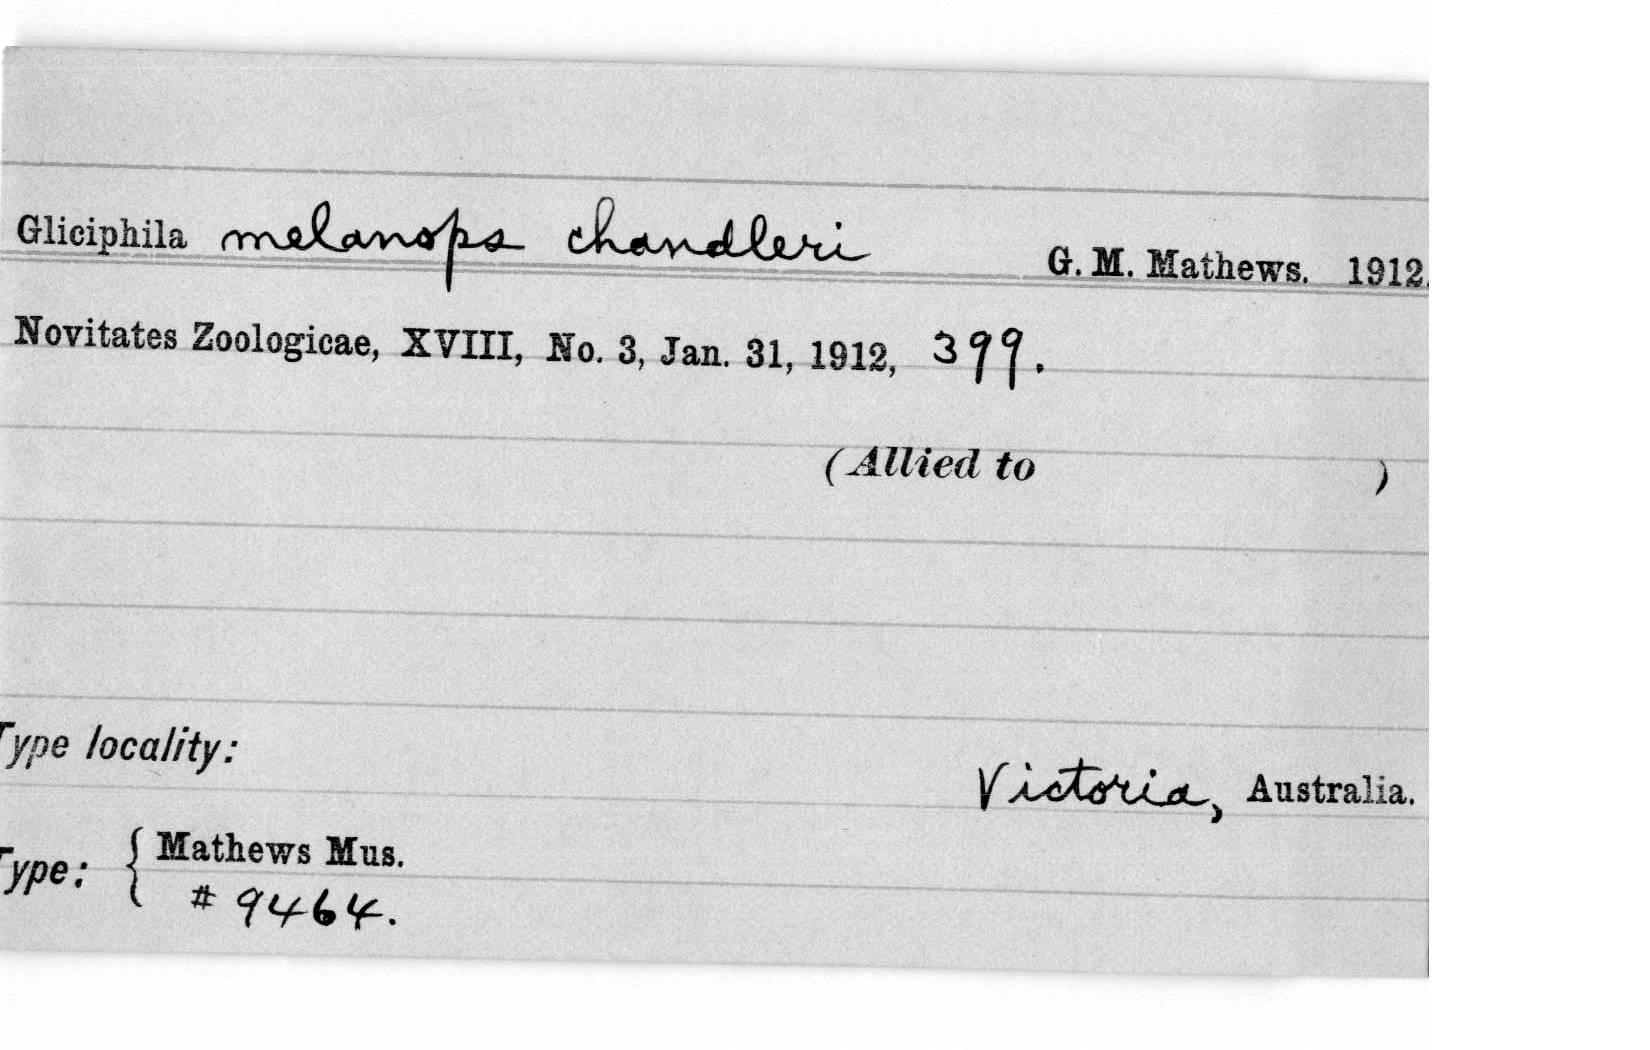 Gliciphila melanops chandleri G. M. Mathews. 1912.
Novitates Zoologicae, XVIII, No. 3, Jan. 31, 1912, 399.
(Allied to )
Type locality:
Victoria, Australia.
Type: { Mathews Mus.
# 9464.